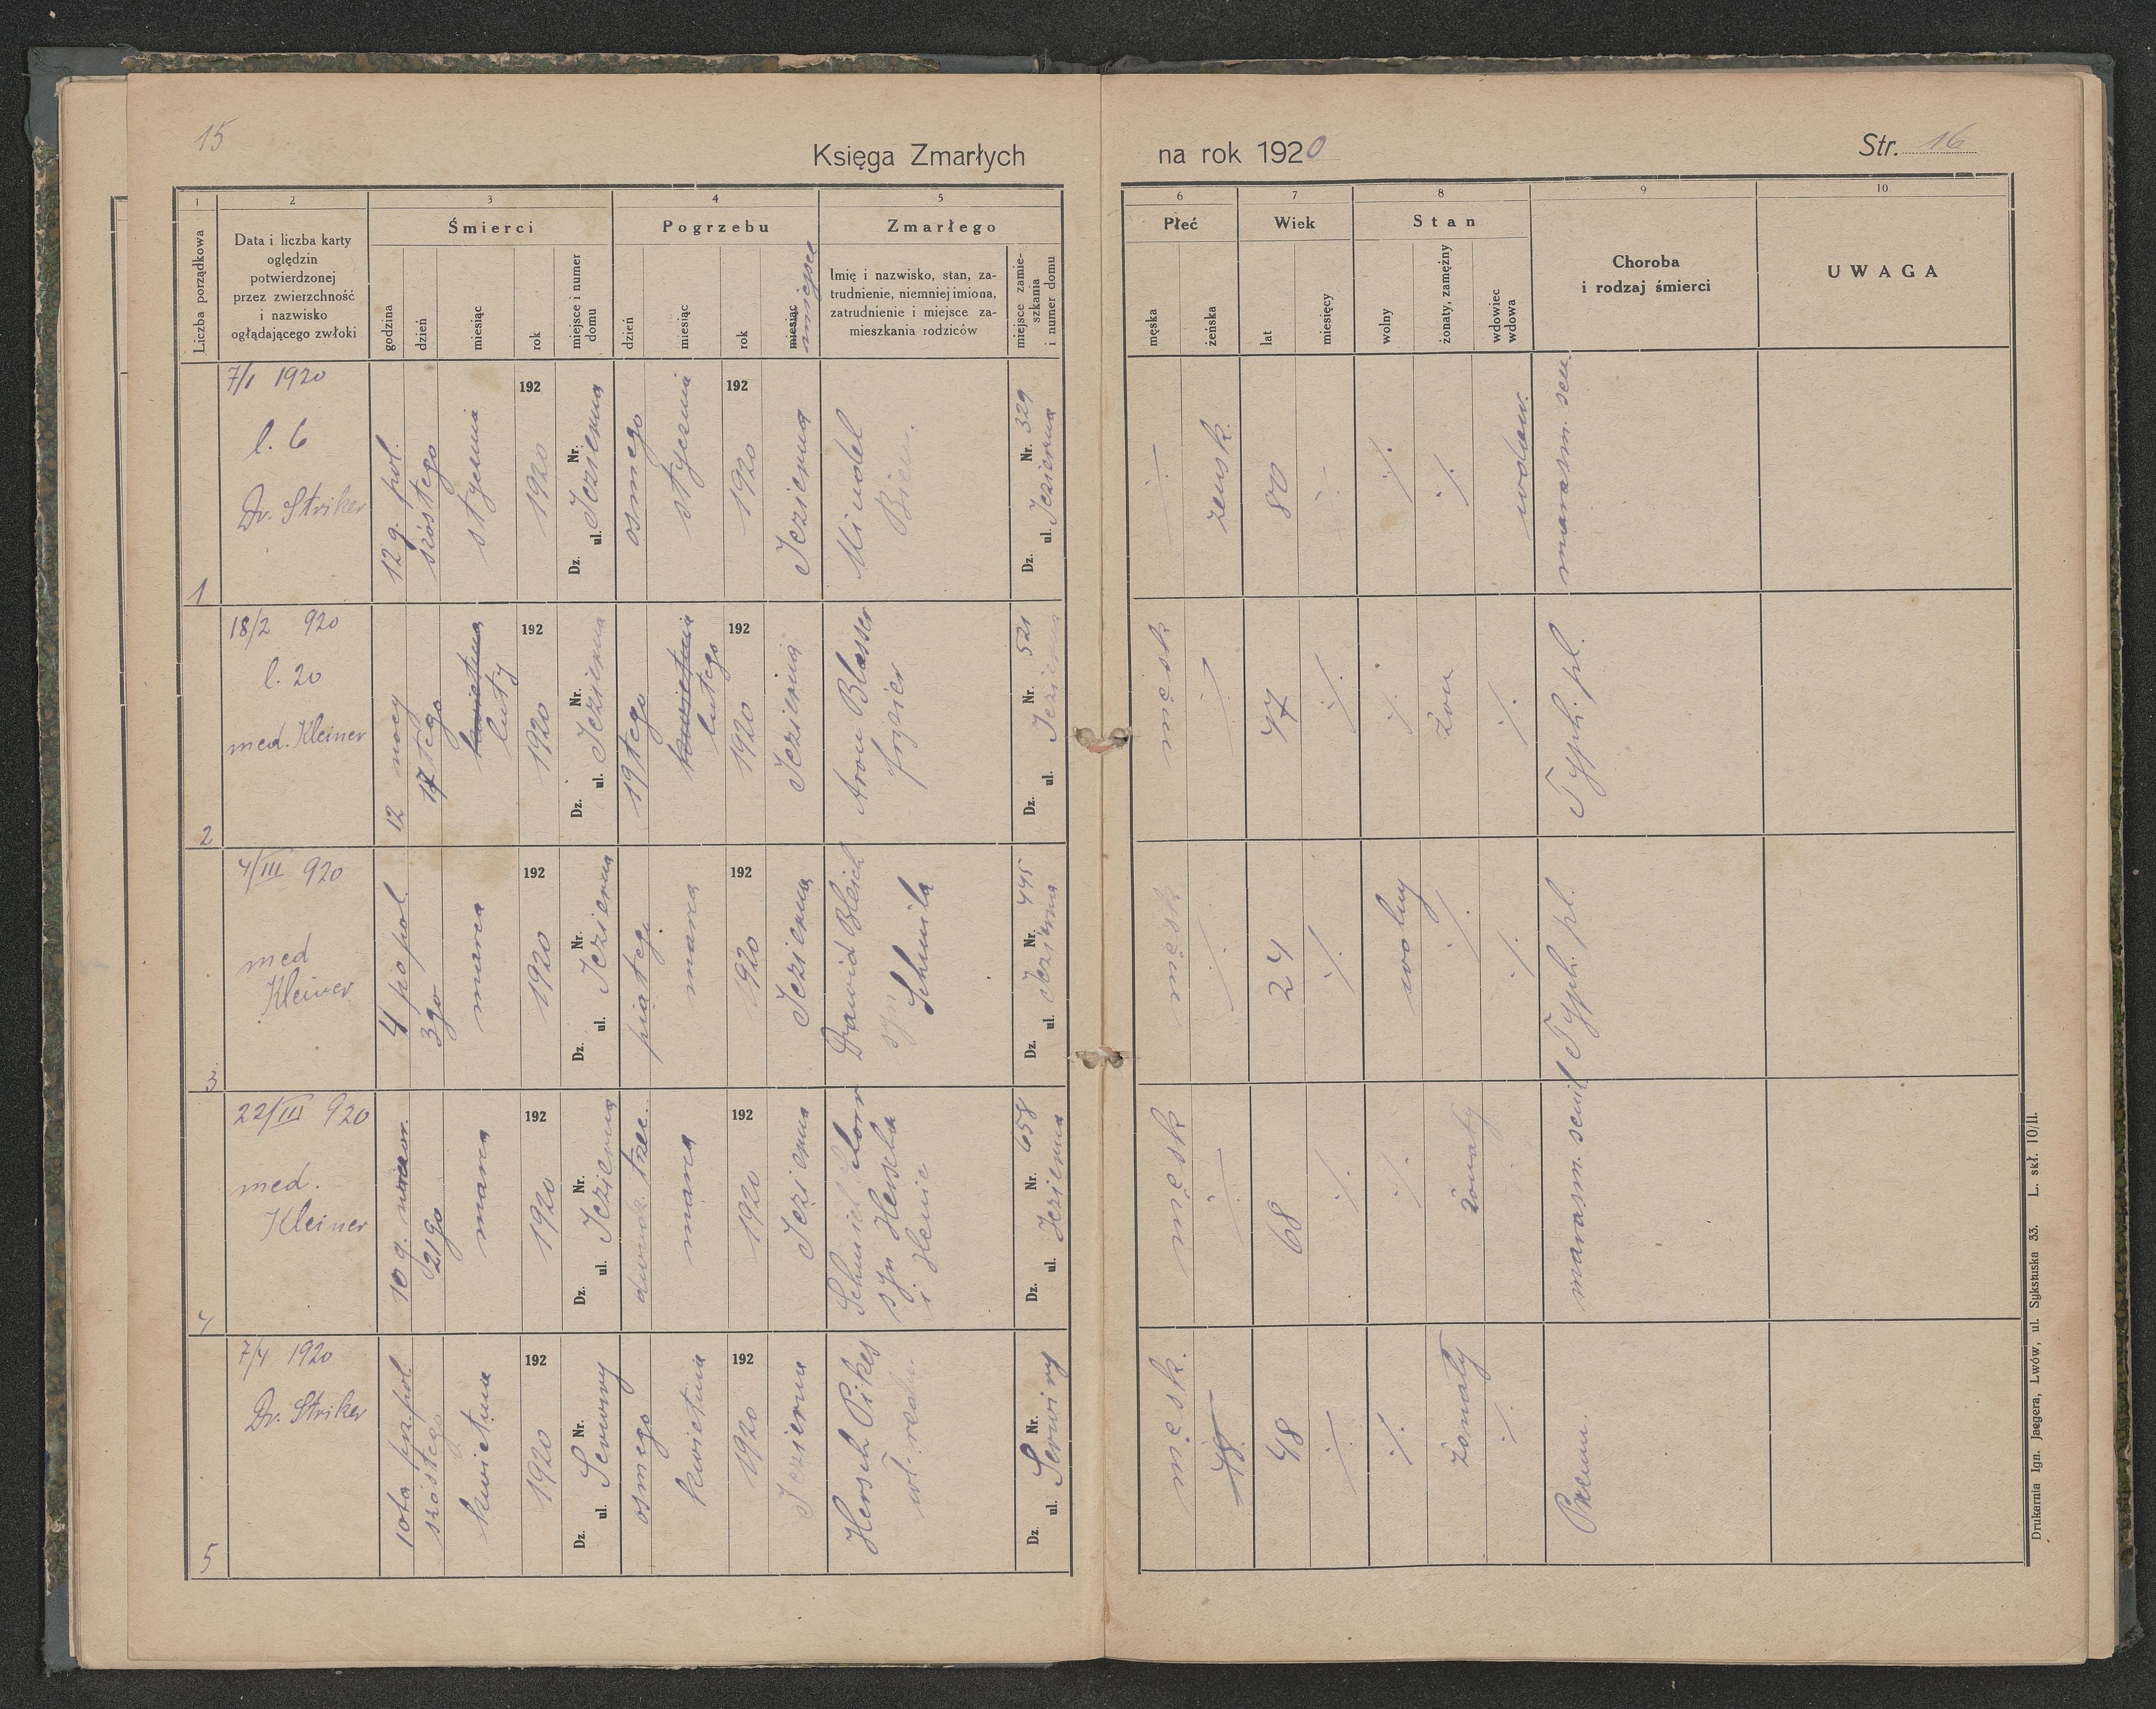 15
Księga Zmarłych
na rok 1920
Str. 16
1
2
3
4
5
6
7
8
9
10
Liczba porządkowa
Data i liczba karty
oględzin
potwierdzonej
przez zwierzchność
i nazwisko
ogłądającego zwłoki
Śmierci
godzina
dzień
miesiąc
rok
miejsce i numer
domu
Pogrzebu
dzień
miesiąc
rok
miesiąc
miejsce
Zmarłego
Imię i nazwisko, stan, za-
trudnienie, niemniej imiona,
zatrudnienie i miejsce za-
mieszkania rodziców
miejsce zamie-
szkania
i numer domu
Płeć
męska
żeńska
Wiek
lat
miesięcy
Stan
wolny
żonaty, zamężny
wdowiec
wdowa
Choroba
i rodzaj śmierci
UWAGA
1
7/I 1920
l. 6
Dr. Striker
12 g. pol.
szóstego
stycznia
192
1920
Dz. Nr.
ul. Jezierna
osmego
stycznia
192
1920
Jezierna
Mindel
Dz. Nr. 329
ul. Jezierna
żensk.
80
./.
./.
./.
wdow.
marasm. sen.
2
18/2 920
l. 20
med. Kleiner
12 nocy
17tego
kwietnia
luty
192
1920
Dz. Nr.
ul. Jezierna
19tego
kwietnia
lutego
192
1920
Jezierna
Aron Blasser
fryzier
Dz. Nr. 521
ul. Jezierna
męsk
./.
47
./.
./.
żon
./.
Typh. pl.
3
4/III 920
med
Kleiner
4 po pol.
3go
marca
192
1920
Dz. Nr.
ul. Jezierna
piątego
marca
192
1920
Jezierna
Dawid Bleich
syn
Schmila
Dz. Nr. 445
ul. Jezierna
męsk
./.
24
./.
wolny
./.
./.
Typh. pl.
4
22/III 920
med.
Kleiner
10 g.
21go
marca
192
1920
Dz. Nr.
ul. Jezierna
dwudz. trzec.
marca
192
1920
Jezierna
syn Herscha
i
Dz. Nr. 658
ul. Jezierna
męsk
./.
68
./.
./.
żonaty
marasm. senil
5
7/4 1920
Dr. Striker
10ta prz. pol.
szóstego
kwietnia
192
1920
Dz. Nr.
ul. Serwiry
osmego
kwietnia
192
1920
Jezierna
Hersch Pikes
Dz. Nr.
ul. Serwiry
męsk.
48
48
./.
./.
żonaty
./.
Pneum.
Drukarnia Ign. Jaegera, Lwów, ul. Sykstuska 33. L. skł. 10/II.